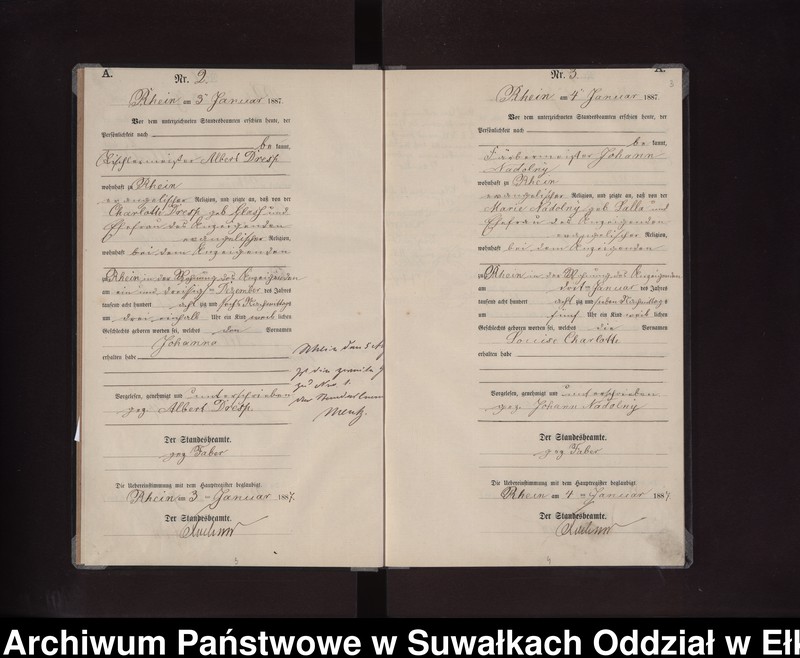 A.
Nr. 2.
Rhein am 3 Januar 1887.
Vor dem unterzeichneten Standesbeamten erschien heute, der
Persönlichkeit nach
be kannt,
Tischlermeister Albert Dresp
wohnhaft zu Rhein
evangelischer Religion, und zeigte an, daß von der
Charlotte Dresp geb und
Ehefrau des Anzeigenden
evangelischer Religion,
wohnhaft bei dem Anzeigenden
zu Rhein in der Wohnung des Anzeigenden
am ein und dreißig Dezember des Jahres
tausend acht hundert acht zig und sechs Nachmittags
um drei einhalb Uhr ein Kind weib lichen
Geschlechts geboren worden sei, welches den Vornamen
Johanna
erhalten habe
Vorgelesen, genehmigt und unterschrieben
gez Albert Dresp.
Der Standesbeamte.
gez Faber
Die Uebereinstimmung mit dem Hauptregister beglaubigt.
Rhein am 3 Januar 1887.
Der Standesbeamte.
Rhein den
zu Nro. 1
der Standesbeamte
A.
3
Nr. 3.
Rhein am 4 Januar 1887
Vor dem unterzeichneten Standesbeamten erschien heute, der
Persönlichkeit nach
be kannt,
Färbermeister Johann
Nadolny
wohnhaft zu Rhein
evangelischer Religion, und zeigte an, daß von der
Marie Nadolny geb Salla und
Ehefrau des Anzeigenden
evangelischer Religion,
wohnhaft bei dem Anzeigenden
zu Rhein in der Wohnung des Anzeigenden
am Januar des Jahres
tausend acht hundert acht zig und sieben Nachmittags
um fünf Uhr ein Kind weib lichen
Geschlechts geboren worden sei, welches die Vornamen
Louise Charlotte
erhalten habe
Vorgelesen, genehmigt und unterschrieben
gez. Johann Nadolny
Der Standesbeamte.
gez Faber
Die Uebereinstimmung mit dem Hauptregister beglaubigt.
Rhein am 4 Januar 1887
Der Standesbeamte.
Archiwum Państwowe w Suwałkach Oddział w Ełk